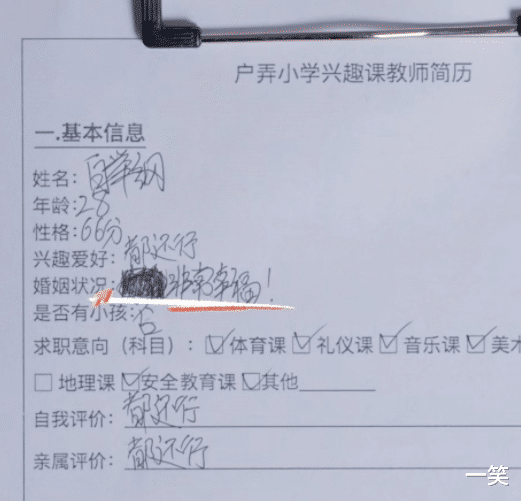 户弄小学兴趣课教师简历
一.基本信息
姓名:白举纲
年龄:28
性格:66分
兴趣爱好:都还行
婚姻状况:非常幸福!
是否有小孩:否
求职意向（科目）: ☑体育课 ☑礼仪课 ☑音乐课 ☑美术
☐地理课 ☑安全教育课 ☑其他
自我评价:都还行
亲属评价:都还行
一笑